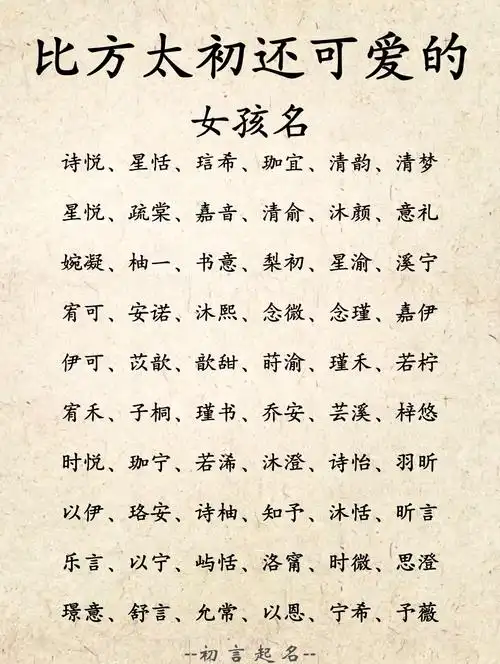 比方太初还可爱的
女孩名
诗悦、星恬、琂希、珈宜、清韵、清梦
星悦、疏棠、嘉音、清俞、沐颜、意礼
婉凝、柚一、书意、梨初、星渝、溪宁
宥可、安诺、沐熙、念微、念瑾、嘉伊
伊可、苡歆、歆甜、莳渝、瑾禾、若柠
宥禾、子桐、瑾书、乔安、芸溪、梓悠
时悦、珈宁、若浠、沐澄、诗怡、羽昕
以伊、珞安、诗柚、知予、沐恬、昕言
乐言、以宁、屿恬、洛甯、时微、思澄
璟意、舒言、允常、以恩、宁希、予薇
--初言起名--